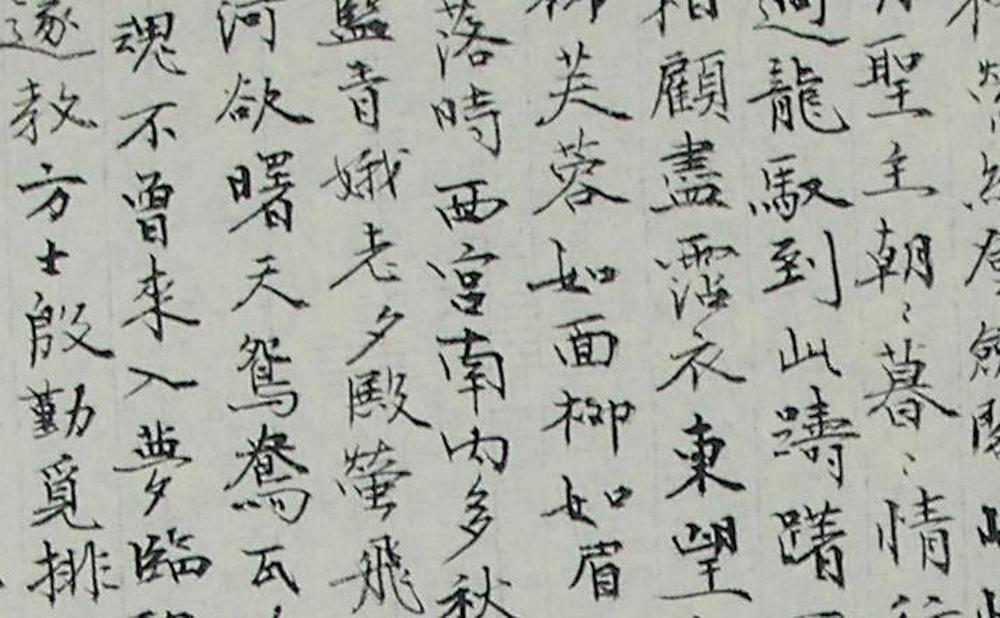 縈紆登劍閣
聖主朝〻暮〻情行
迴龍馭到此躊躇
相顧盡霑衣東望
柳芙蓉如面柳如眉
落時西宮南內多秋
監青娥老夕殿螢飛
河欲曙天鴛鴦瓦
魂不曾來入夢臨
遂教方士殷勤覓排